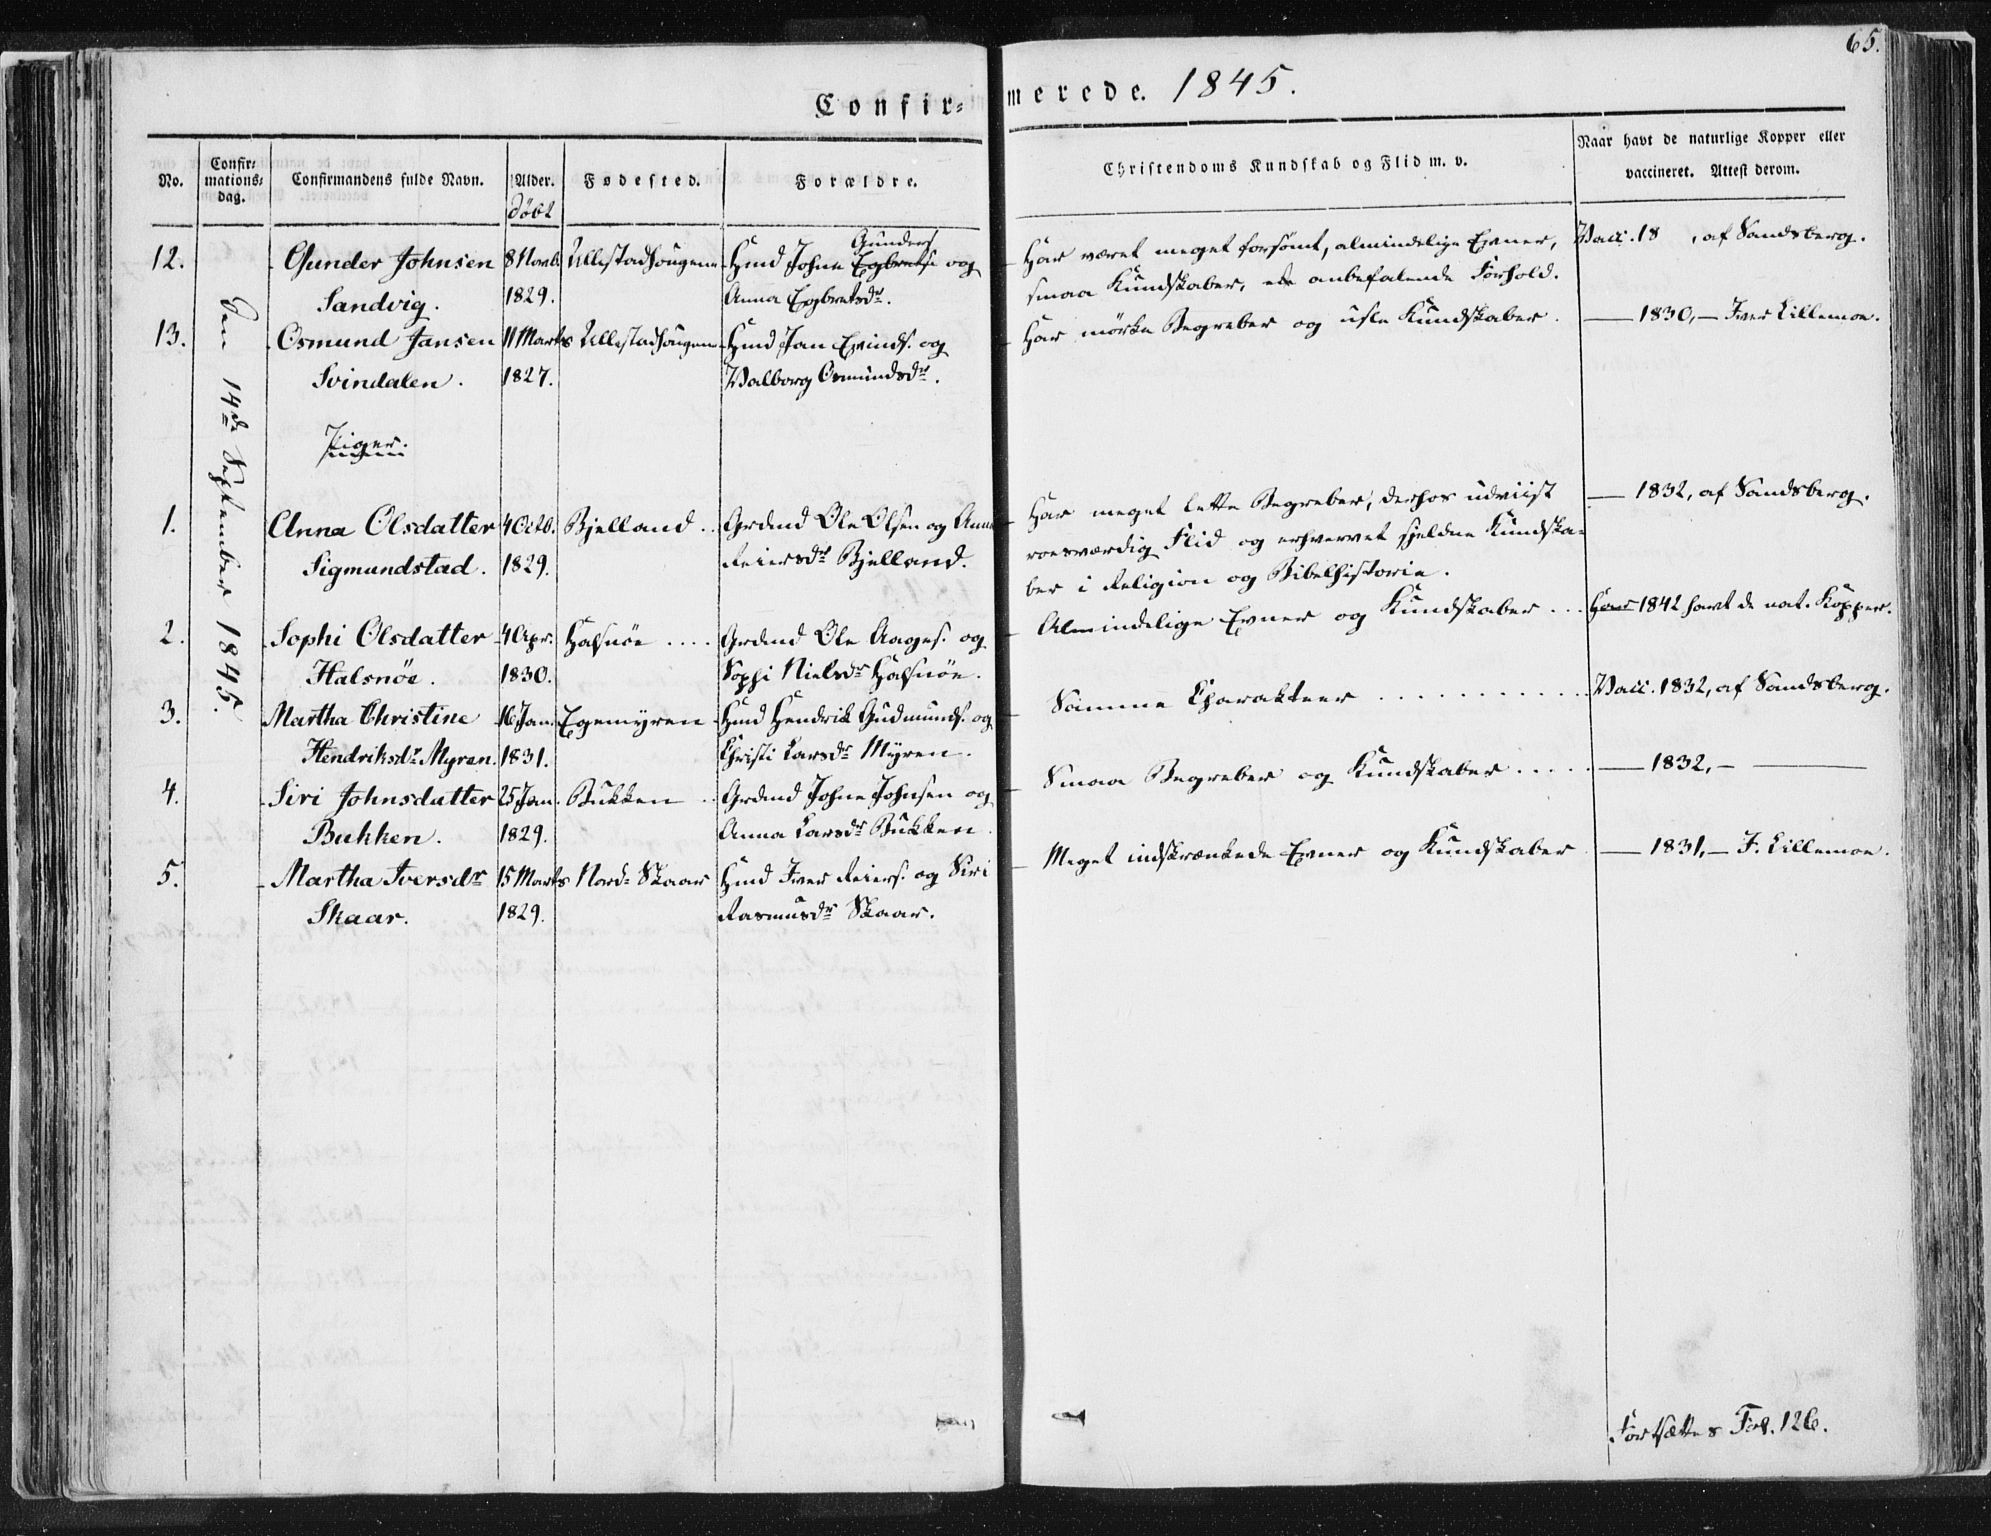 65.
Confir= merede. 1845.
No.
Confir=
mations=
dag.
Confirmandens fulde Navn.
Alder.
døbt
Fødested.
Forældre.
Christendoms Kundskab og Flid m. v.
Naar havt de naturlige Kopper eller
vaccineret. Attest derom.
Den 14de September 1845.
12. Gunder Johnsen 8 Novb. Ullestadhougene Hmd Johne Egbretss. og
Gunders.
Sandvig. 1829. Anna Egbretsdr.
Har været meget forsömt, almindelige Evner,
smaa Kundskaber, anbefalende Forhold.
Vacc. 18 , af Sandsberg.
13. Osmund Jansen 11 Marts Ullestadhougene Hmd Jan Evinds. og
Svindalen. 1827. Walborg Osmundsdr.
Har mörke Begreber og usle Kundskaber.
— 1830, — Iver Lillemoe.
Piger.
1. Anna Olsdatter 4 Octb. Bjelland .. Grdmd Ole Olsen og Anna
Sigmundstad. 1829. Reiersdr Bjelland.
Har meget lette Begreber, derhos udviist
roesværdig Flid og erhvervet sjeldne Kundska=
ber i Religion og Bibelhistorie.
— 1832, af Sandsberg.
2. Sophi Olsdatter 4 Apr. Halsnöe .... Grdmd Ole Aages. og
Halsnöe. 1830. Sophi Nielsdr Halsnöe.
Almindelige Evner og Kundskaber ...
Har 1842 havt de nat. Kopper.
3. Martha Christine 16 Jan. Egemyren Hmd Hendrick Gudmunds. og
Hendriksdr Myren. 1831. Christi Larsdr Myren.
Samme Charakteer ...........
Vacc. 1832, af Sandsberg.
4. Siri Johnsdatter 25 Jan. Bukken .. Grdmd Johne Johnsen og
Bukken. 1829. Anna Larsdr Bukken.
Smaa Begreber og Kundskaber .....
— 1832, — —
5. Martha Iversdr 15 Marts Nord- Skaar Hmd Iver Reiers. og Siri
Skaar. 1829. Rasmusdr Skaar.
Meget indskrænkede Evner og Kundskaber
— 1831, — I. Lillemoe.
Fortsættes Fol. 126.